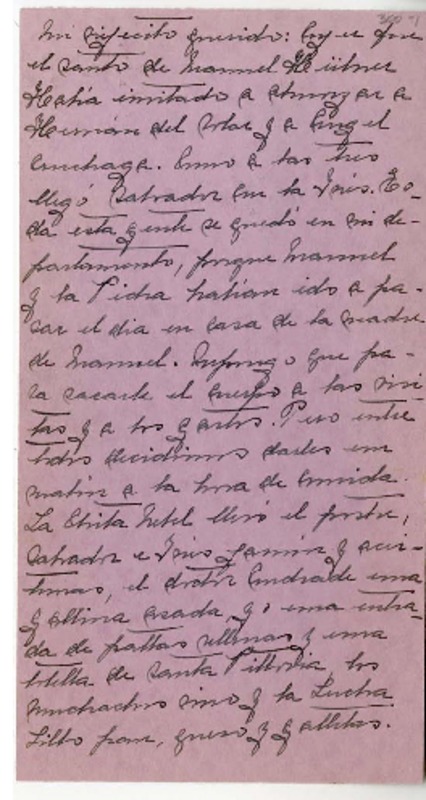 360-1
Mi              querido: Ayer fue
el santo de Manuel Hübner
Había invitado a almorzar a
Hernán del Solar y a Angel
Cruchaga. Como a las tres
llegó Salvador con la Inés. To-
da esta gente se quedó en mi de-
partamento, porque Manuel
y la Picha habían ido a pa-
sar el día en casa de la madre
de Manuel. Supongo que pa-
ra sacarle el cuerpo a las visi-
tas y a los gastos. Pero entre
todos decidimos darles un
malón a la hora de comida.
La            llevó el postre,
Salvador e Inés jamón y acei-
tunas, el doctor Andrade una
gallina asada, yo una entra-
da de paltas rellenas y una
botella de Santa          los
muchachos vino y la Lucha
Lillo pan, queso y galletas.